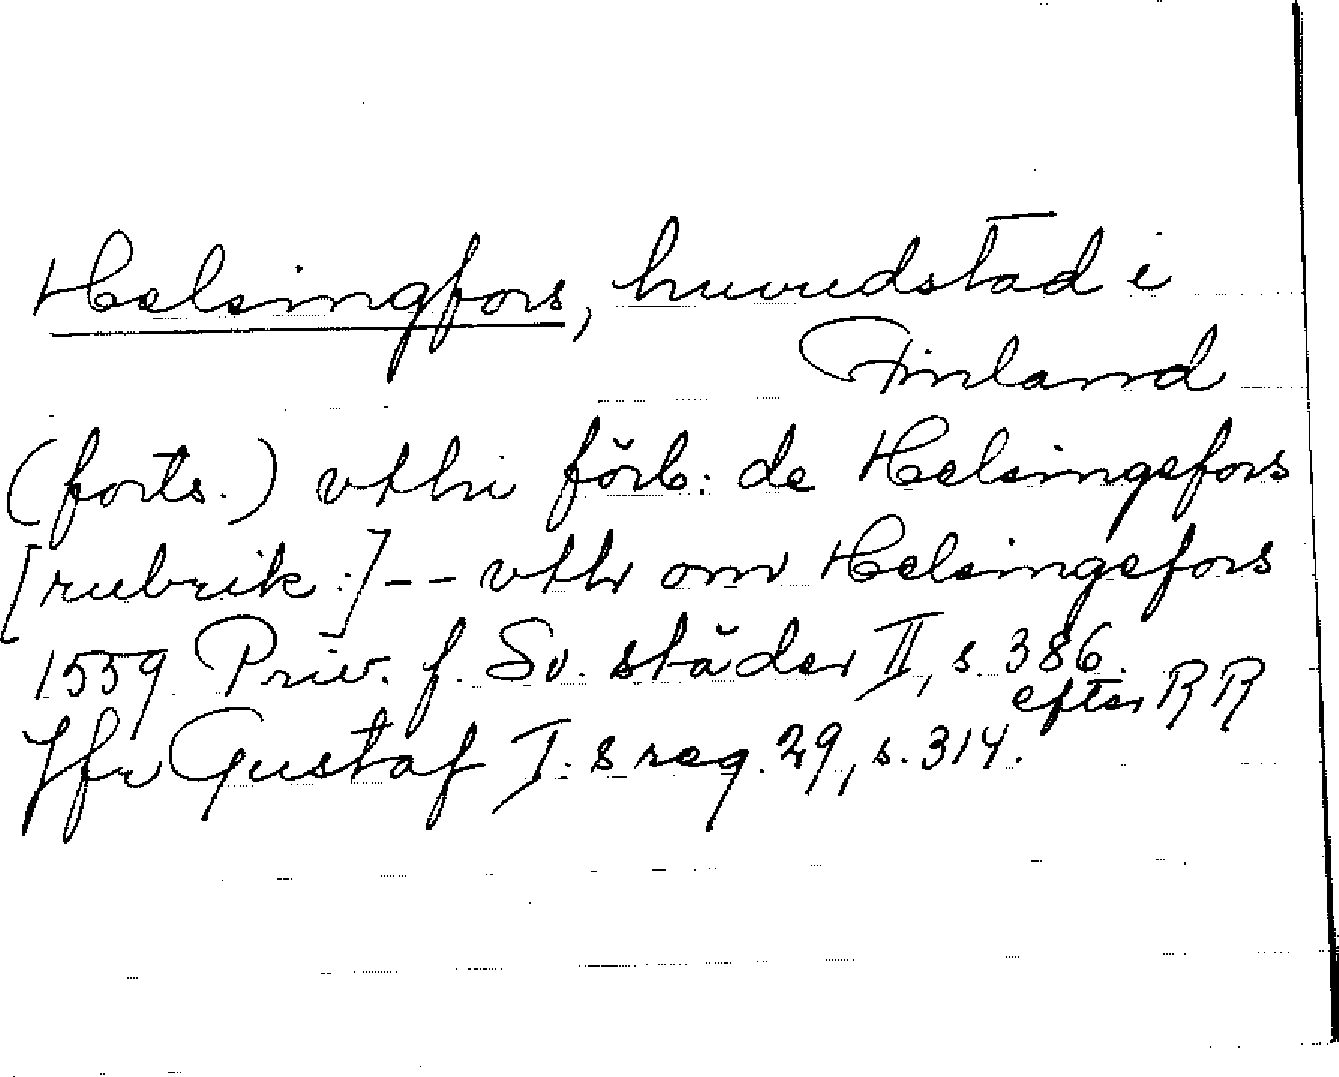 Helsingfors, huvudstad i
Finland
(forts.) vthi förb: de Helsingefors
[rubrik:] -- vthr om Helsingefors
1559 Priv. f. Sv. städer II, s. 386.
efter RR
Jfr Gustaf I:s reg. 29, s. 314.